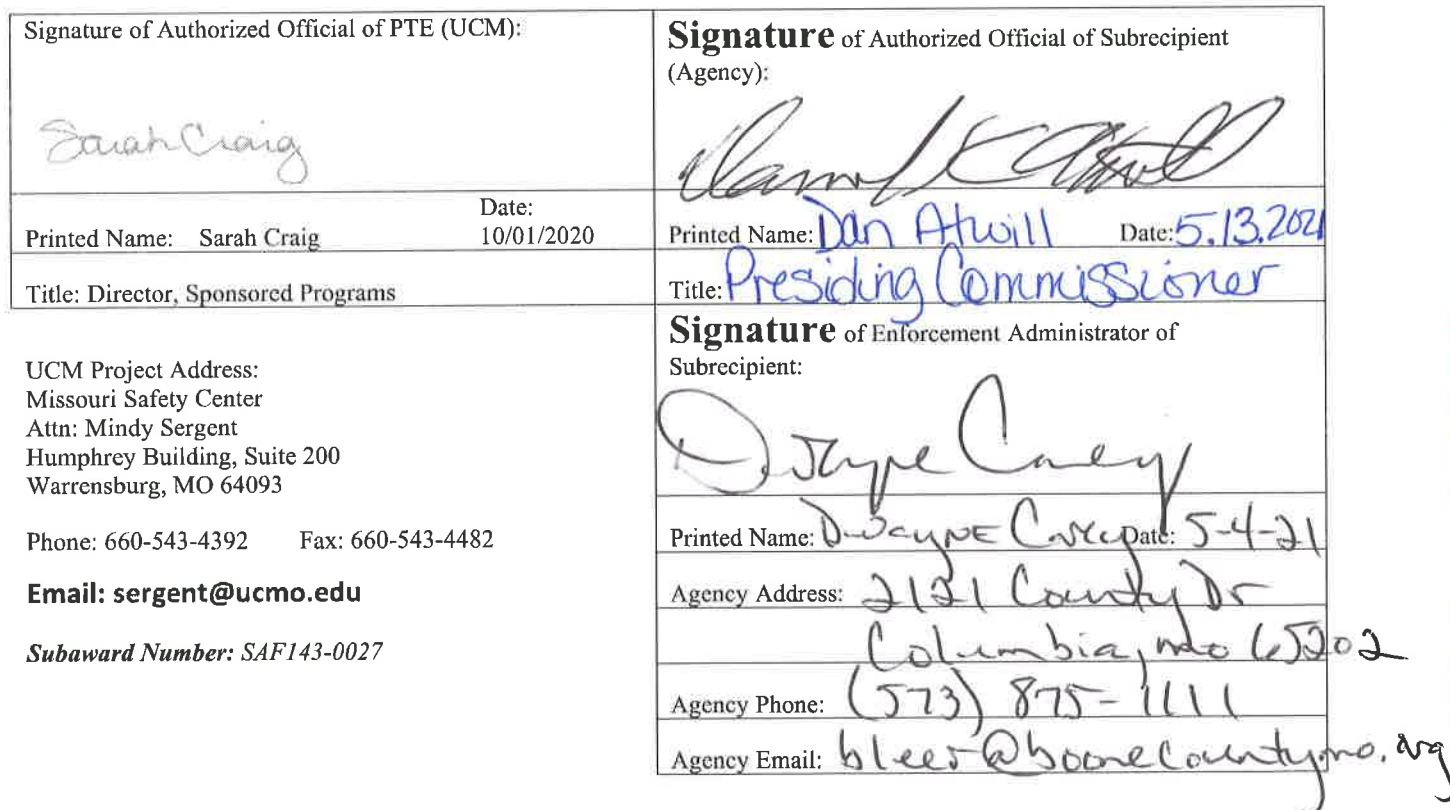 Signature of Authorized Official of PTE (UCM):
Sarah Craig
Printed Name: Sarah Craig
Date:
10/01/2020
Title: Director, Sponsored Programs
UCM Project Address:
Missouri Safety Center
Attn: Mindy Sergent
Humphrey Building, Suite 200
Warrensburg, MO 64093
Phone: 660-543-4392 Fax: 660-543-4482
Email: sergent@ucmo.edu
Subaward Number: SAF143-0027
Signature of Authorized Official of Subrecipient
(Agency):
Printed Name: Dan Atwill Date: 5.13.2021
Title: Presiding Commissioner
Signature of Enforcement Administrator of
Subrecipient:
Dwayne Carey
Printed Name: DWayNE Carey Date: 5-4-21
Agency Address: 2121 County Dr
Columbia, mo 65202
Agency Phone: (573) 875-1111
Agency Email: bleer@boonecountymo.org